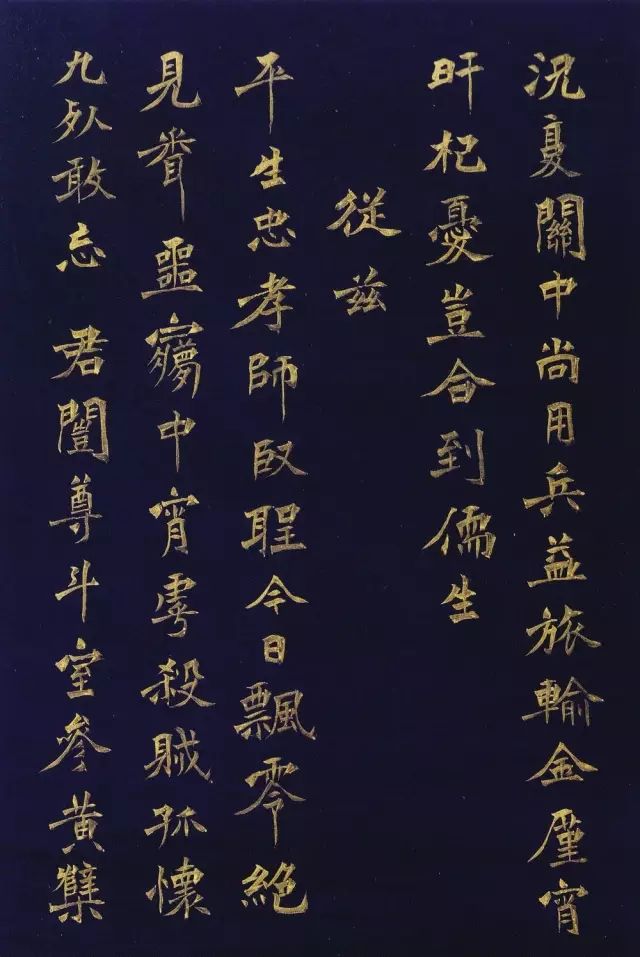 況复關中尚用兵益旅輸金廑宵
旰杞憂豈合到儒生
從茲
平生忠孝師臤聖今日飄零絕
見䎽噩㝱中宵虖殺賊孤懷
九死敢忘 君闓尊斗室參黃